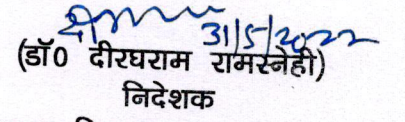 31/5/2022
(डॉ0 दीरघराम रामस्नेही)
निदेशक